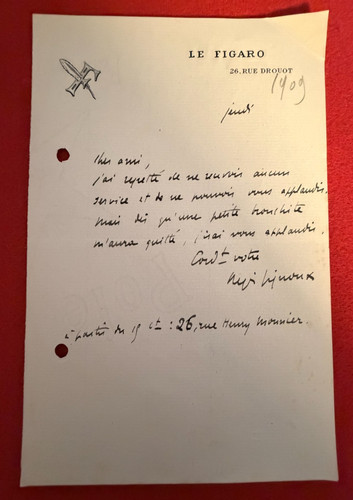 LE FIGARO
26, RUE DROUOT
1909
jeudi
Cher ami,
j'ai regretté de ne recevoir aucun
service et de ne pouvoir vous applaudir.
Mais dès qu'une petite bronchite
m'aura quitté, j'irai vous applaudir.
Cordt votre
Régis Gignoux
à partir du 15 ct : 26, rue Henry Monnier.